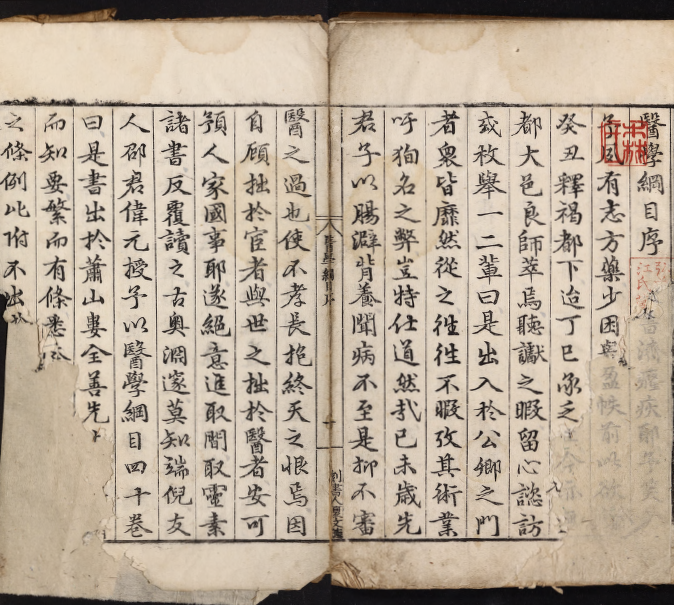 醫學綱目序
予夙有志方藥少因輿盈帙前
癸丑釋褐都下迨丁巳承乏
都大邑良師萃焉聽讞之暇留心諮訪
或枚舉一二輩曰是出入於公卿之門
者衆皆靡然從之徃徃不暇攷其術業
吁狥名之弊豈特仕道然㢤已未歳先
君子以腸澼背養聞病不至是抑不審
醫學綱目序
醫之過也使不孝長抱終天之恨焉因
自顧拙於宦者與世之拙於醫者安可
預人家國事耶遂絕意進取閒取靈素
諸書反覆讀之古奥淵邃莫知端倪友
人邵君偉元授予以醫學綱目四十巻
曰是書出於蕭山婁全善先
而知要繁而有條悉
之條例此附不出